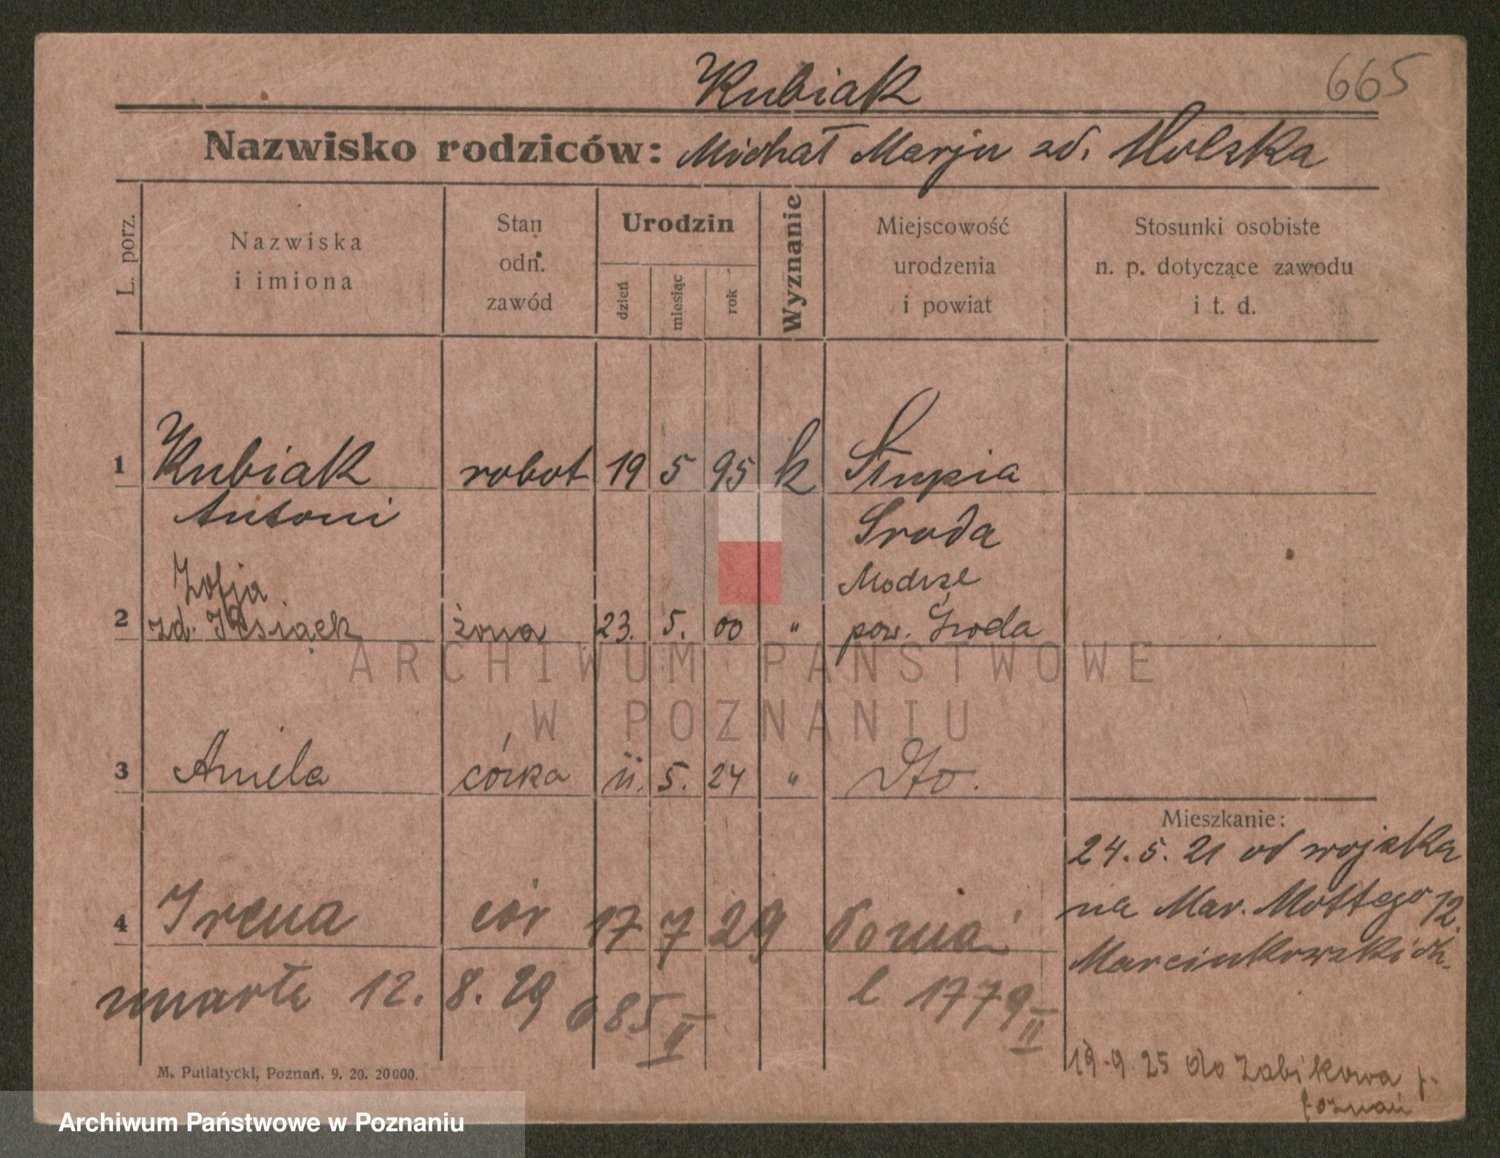 Kubiak 665
Nazwisko rodziców: Michał Marju zd. Molska
L. porz.
Nazwiska
i imiona
Stan
odn.
zawód
Urodzin
dzień
miesiąc
rok
Wyznanie
Miejscowość
urodzenia
i powiat
Stosunki osobiste
n. p. dotyczące zawodu
i t. d.
1 Kubiak robot 19 5 95 k Słupia
Antoni Sroda
Zofja Modrze
2 zd. żona 23. 5. 00 " pow. Sroda
ARCHIWUM PAŃSTWOWE
W POZNANIU
3 Aniela córka 11. 5. 24 " dto.
Mieszkanie:
24.5.21 od wojska
na Mar. Mottego 12.
Marcinkowskich
4 Irena cór 17 7 29 Poznań
umarła 12. 8. 29 685 II l 1779 II
19.9.25 do Zabikowa p.
Poznań
M. Putiatycki, Poznań. 9. 20. 20000.
Archiwum Państwowe w Poznaniu